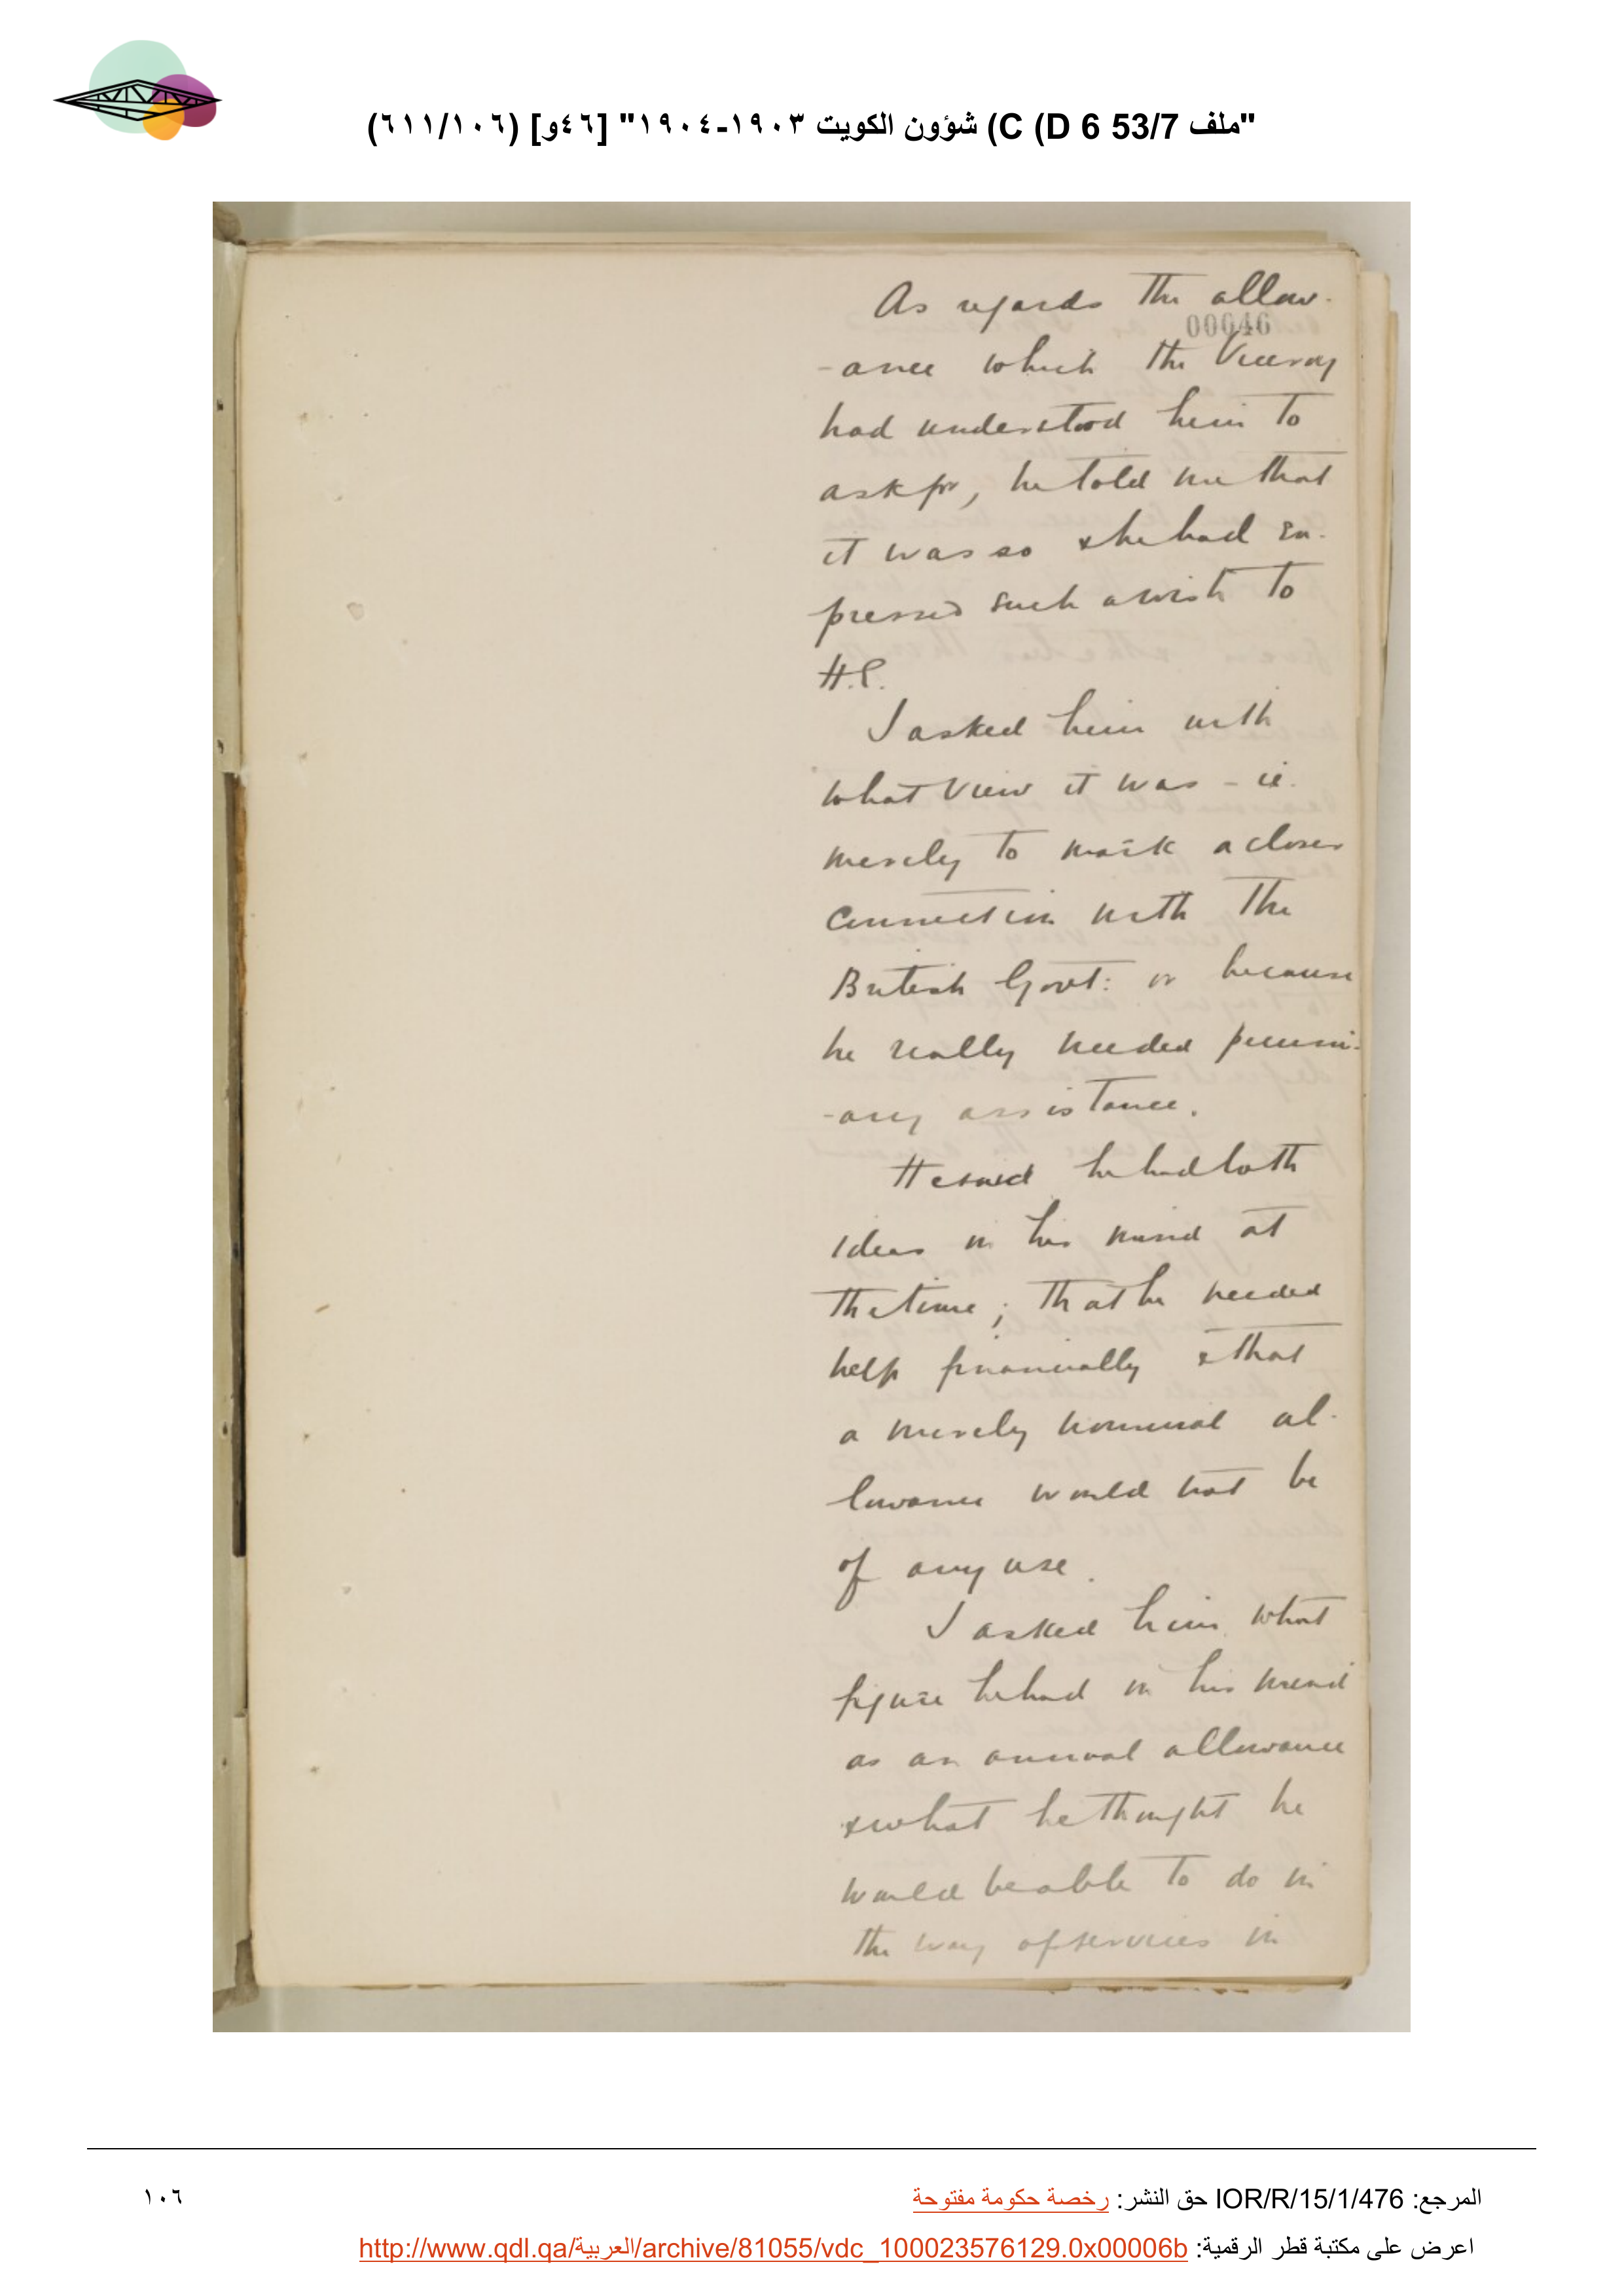 "ملف 53/7 D 6) C) شؤون الكويت ١٩٠٣-١٩٠٤" [٤٦و] (٦١١/١٠٦)
As regards the allow-
00046
-ance which the Viceroy
had understood him to
ask for, he told me that
it was so & he had ex-
pressed such a wish to
H.E.
I asked him with
what view it was - i.e.
merely to mark a closer
connection with the
British Govt: or because
he really needed pecuni-
-ary assistance.
He said he had both
ideas in his mind at
the time; that he needed
help financially & that
a merely nominal al-
lowance would not be
of any use.
I asked him what
figure he had in his mind
as an annual allowance
& what he thought he
would be able to do in
the way of services in
المرجع: IOR/R/15/1/476 حق النشر: رخصة حكومة مفتوحة
١٠٦
اعرض على مكتبة قطر الرقمية: http://www.qdl.qa/العربية/archive/81055/vdc_100023576129.0x00006b